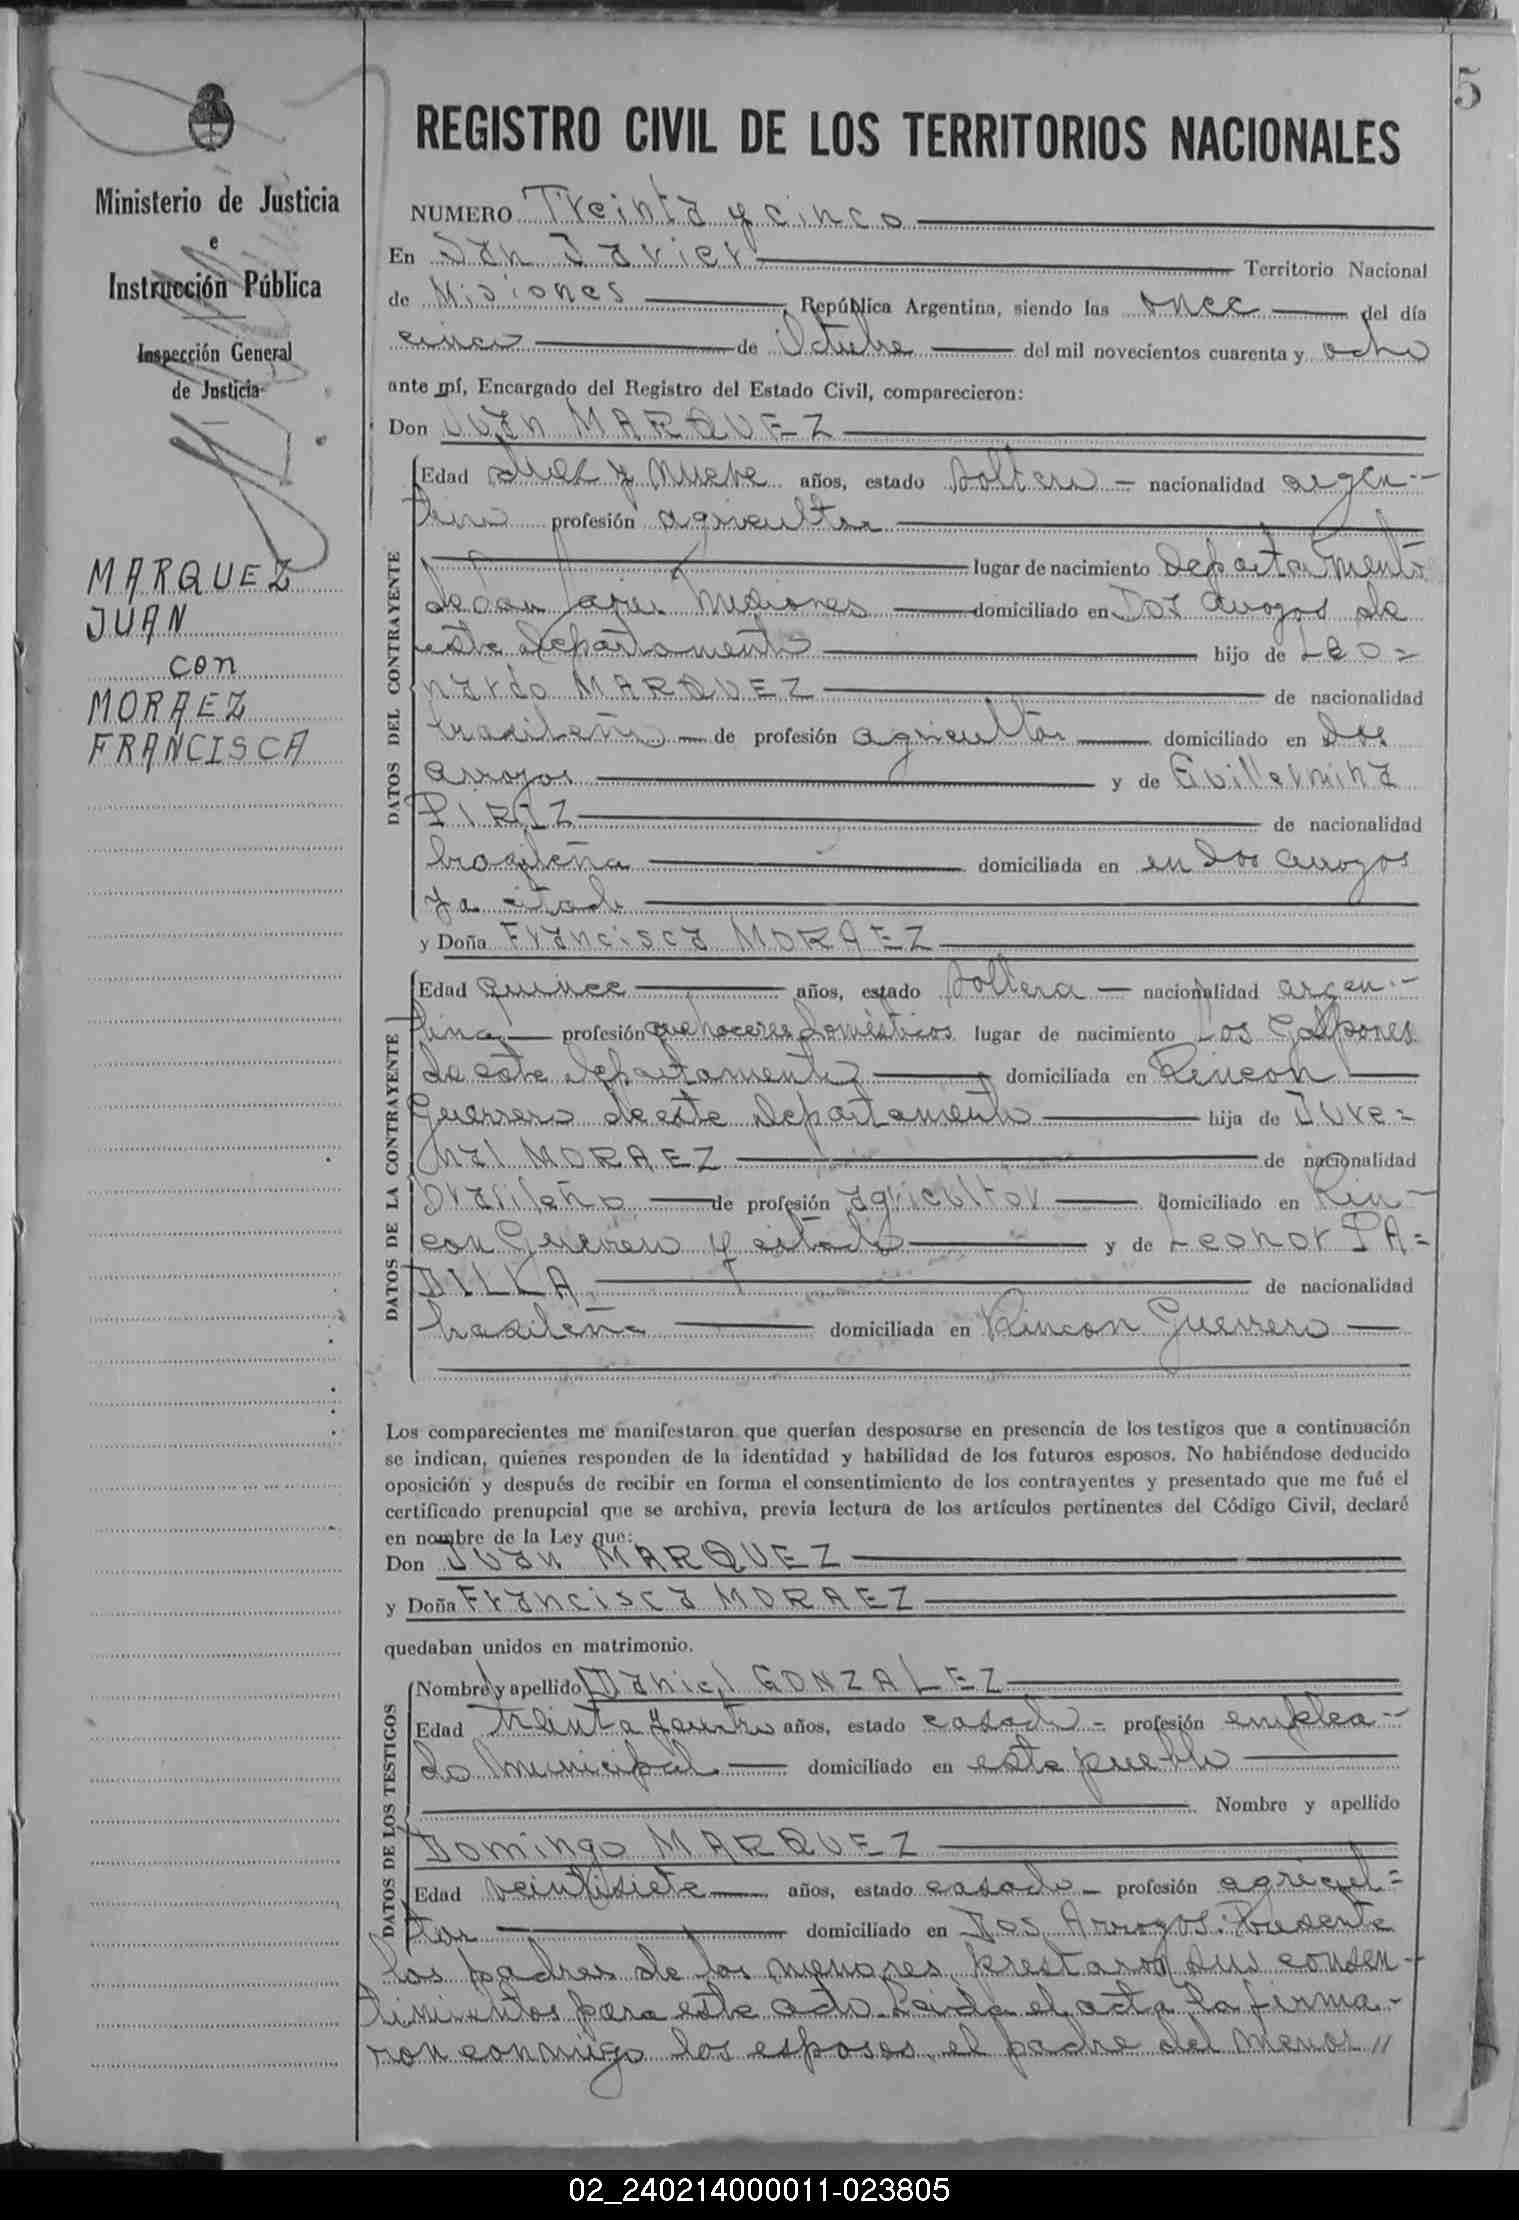 5
Ministerio de Justicia
e
Instrucción Pública
Inspección General
de Justicia
MARQUEZ
JUAN
con
MORAEZ
FRANCISCA
REGISTRO CIVIL DE LOS TERRITORIOS NACIONALES
NUMERO Treinta y cinco
En San Javier Territorio Nacional
de Misiones República Argentina, siendo las once del día
cinco de Octubre del mil novecientos cuarenta y ocho
ante mí, Encargado del Registro del Estado Civil, comparecieron:
Don Juan MARQUEZ
DATOS DEL CONTRAYENTE
Edad diez y nueve años, estado soltero - nacionalidad argen-
tino profesión agricultor
lugar de nacimiento departamento
de San Javier Misiones domiciliado en Dos Arroyos de
este departamento hijo de Leo=
nardo MARQUEZ de nacionalidad
brasileño de profesión agricultor domiciliado en Dos
Arroyos y de Guillermina
PIRIZ de nacionalidad
brasileña domiciliada en en Dos Arroyos
ya citado
y Doña Francisca MORAEZ
DATOS DE LA CONTRAYENTE
Edad quince años, estado soltera - nacionalidad argen-
tina profesión quehaceres domésticos lugar de nacimiento Los Galpones
de este departamento domiciliada en Rincon
Guerrero de este departamento hija de Juve=
nal MORAEZ de nacionalidad
brasileño de profesión agricultor domiciliado en Rin-
con Guerrero y citado y de Leonor PA=
DILLA de nacionalidad
brasileña domiciliada en Rincon Guerrero
Los comparecientes me manifestaron que querían desposarse en presencia de los testigos que a continuación
se indican, quienes responden de la identidad y habilidad de los futuros esposos. No habiéndose deducido
oposición y después de recibir en forma el consentimiento de los contrayentes y presentado que me fué el
certificado prenupcial que se archiva, previa lectura de los artículos pertinentes del Código Civil, declaré
en nombre de la Ley que:
Don Juan MARQUEZ
y Doña Francisca MORAEZ
quedaban unidos en matrimonio.
DATOS DE LOS TESTIGOS
Nombre y apellido Daniel GONZALEZ
Edad treinta y cuatro años, estado casado - profesión emplea-
do municipal domiciliado en este pueblo
Nombre y apellido
Domingo MARQUEZ
Edad veintisiete años, estado casado - profesión agricul=
tor domiciliado en Dos Arroyos. Presente
los padres de los menores, prestaron sus consen-
timientos para este acto. Leida el acta la firma-
ron conmigo los esposos, el padre del menor //
02_240214000011-023805